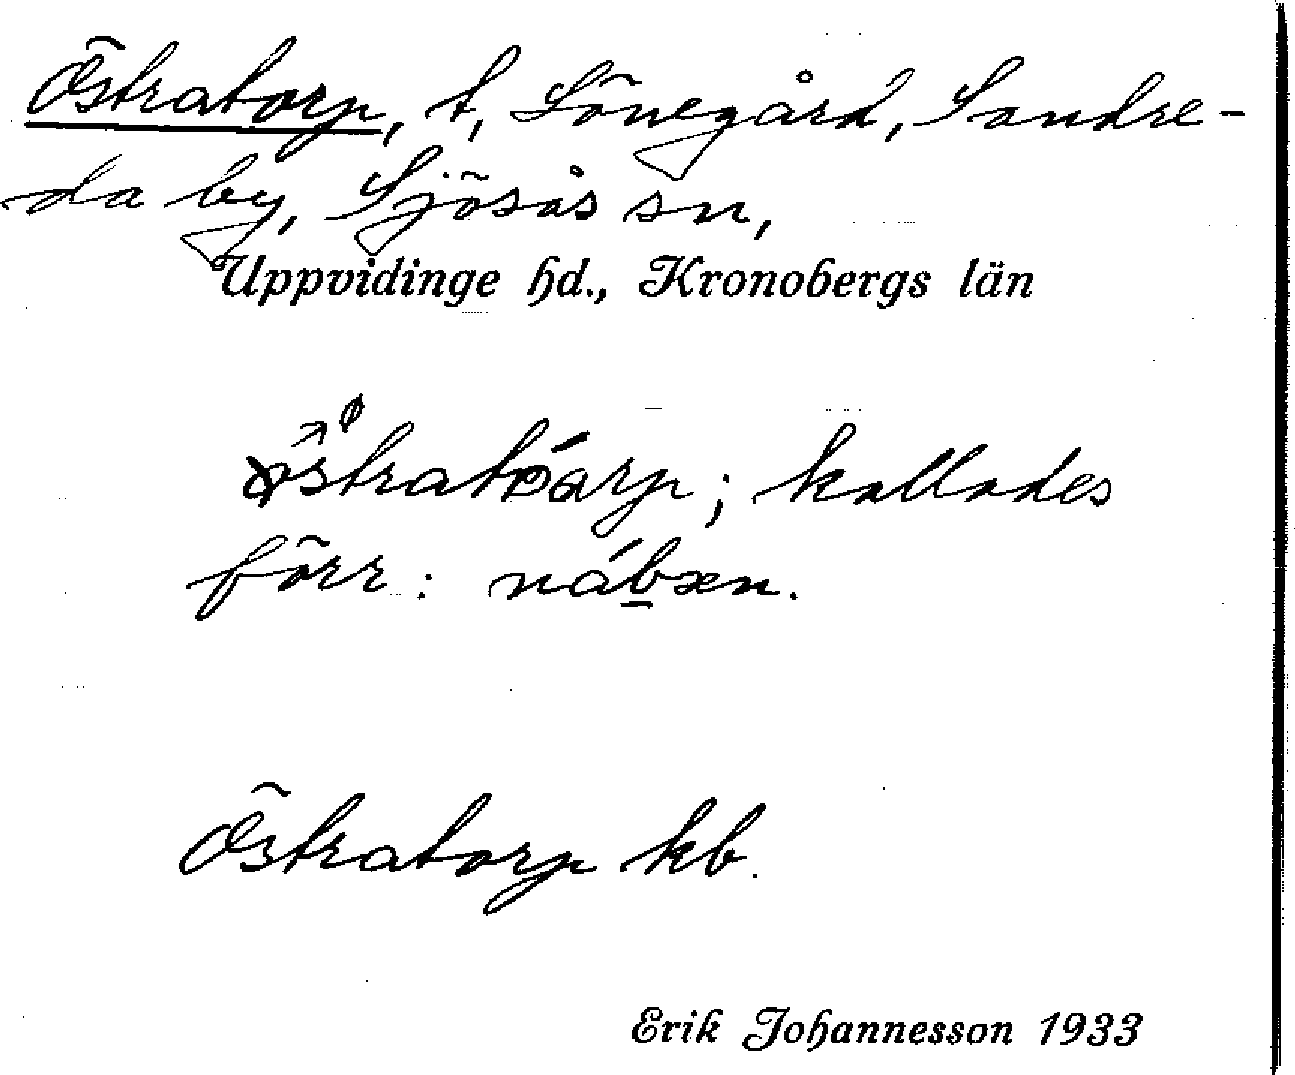 Östratorp, t, Lönegård, Sandre-
da by, Sjösås sn,
Uppvidinge hd., Kronobergs län
östratårp; kallades
förr: nábxn.
Östratorp kb.
Erik Johannesson 1933